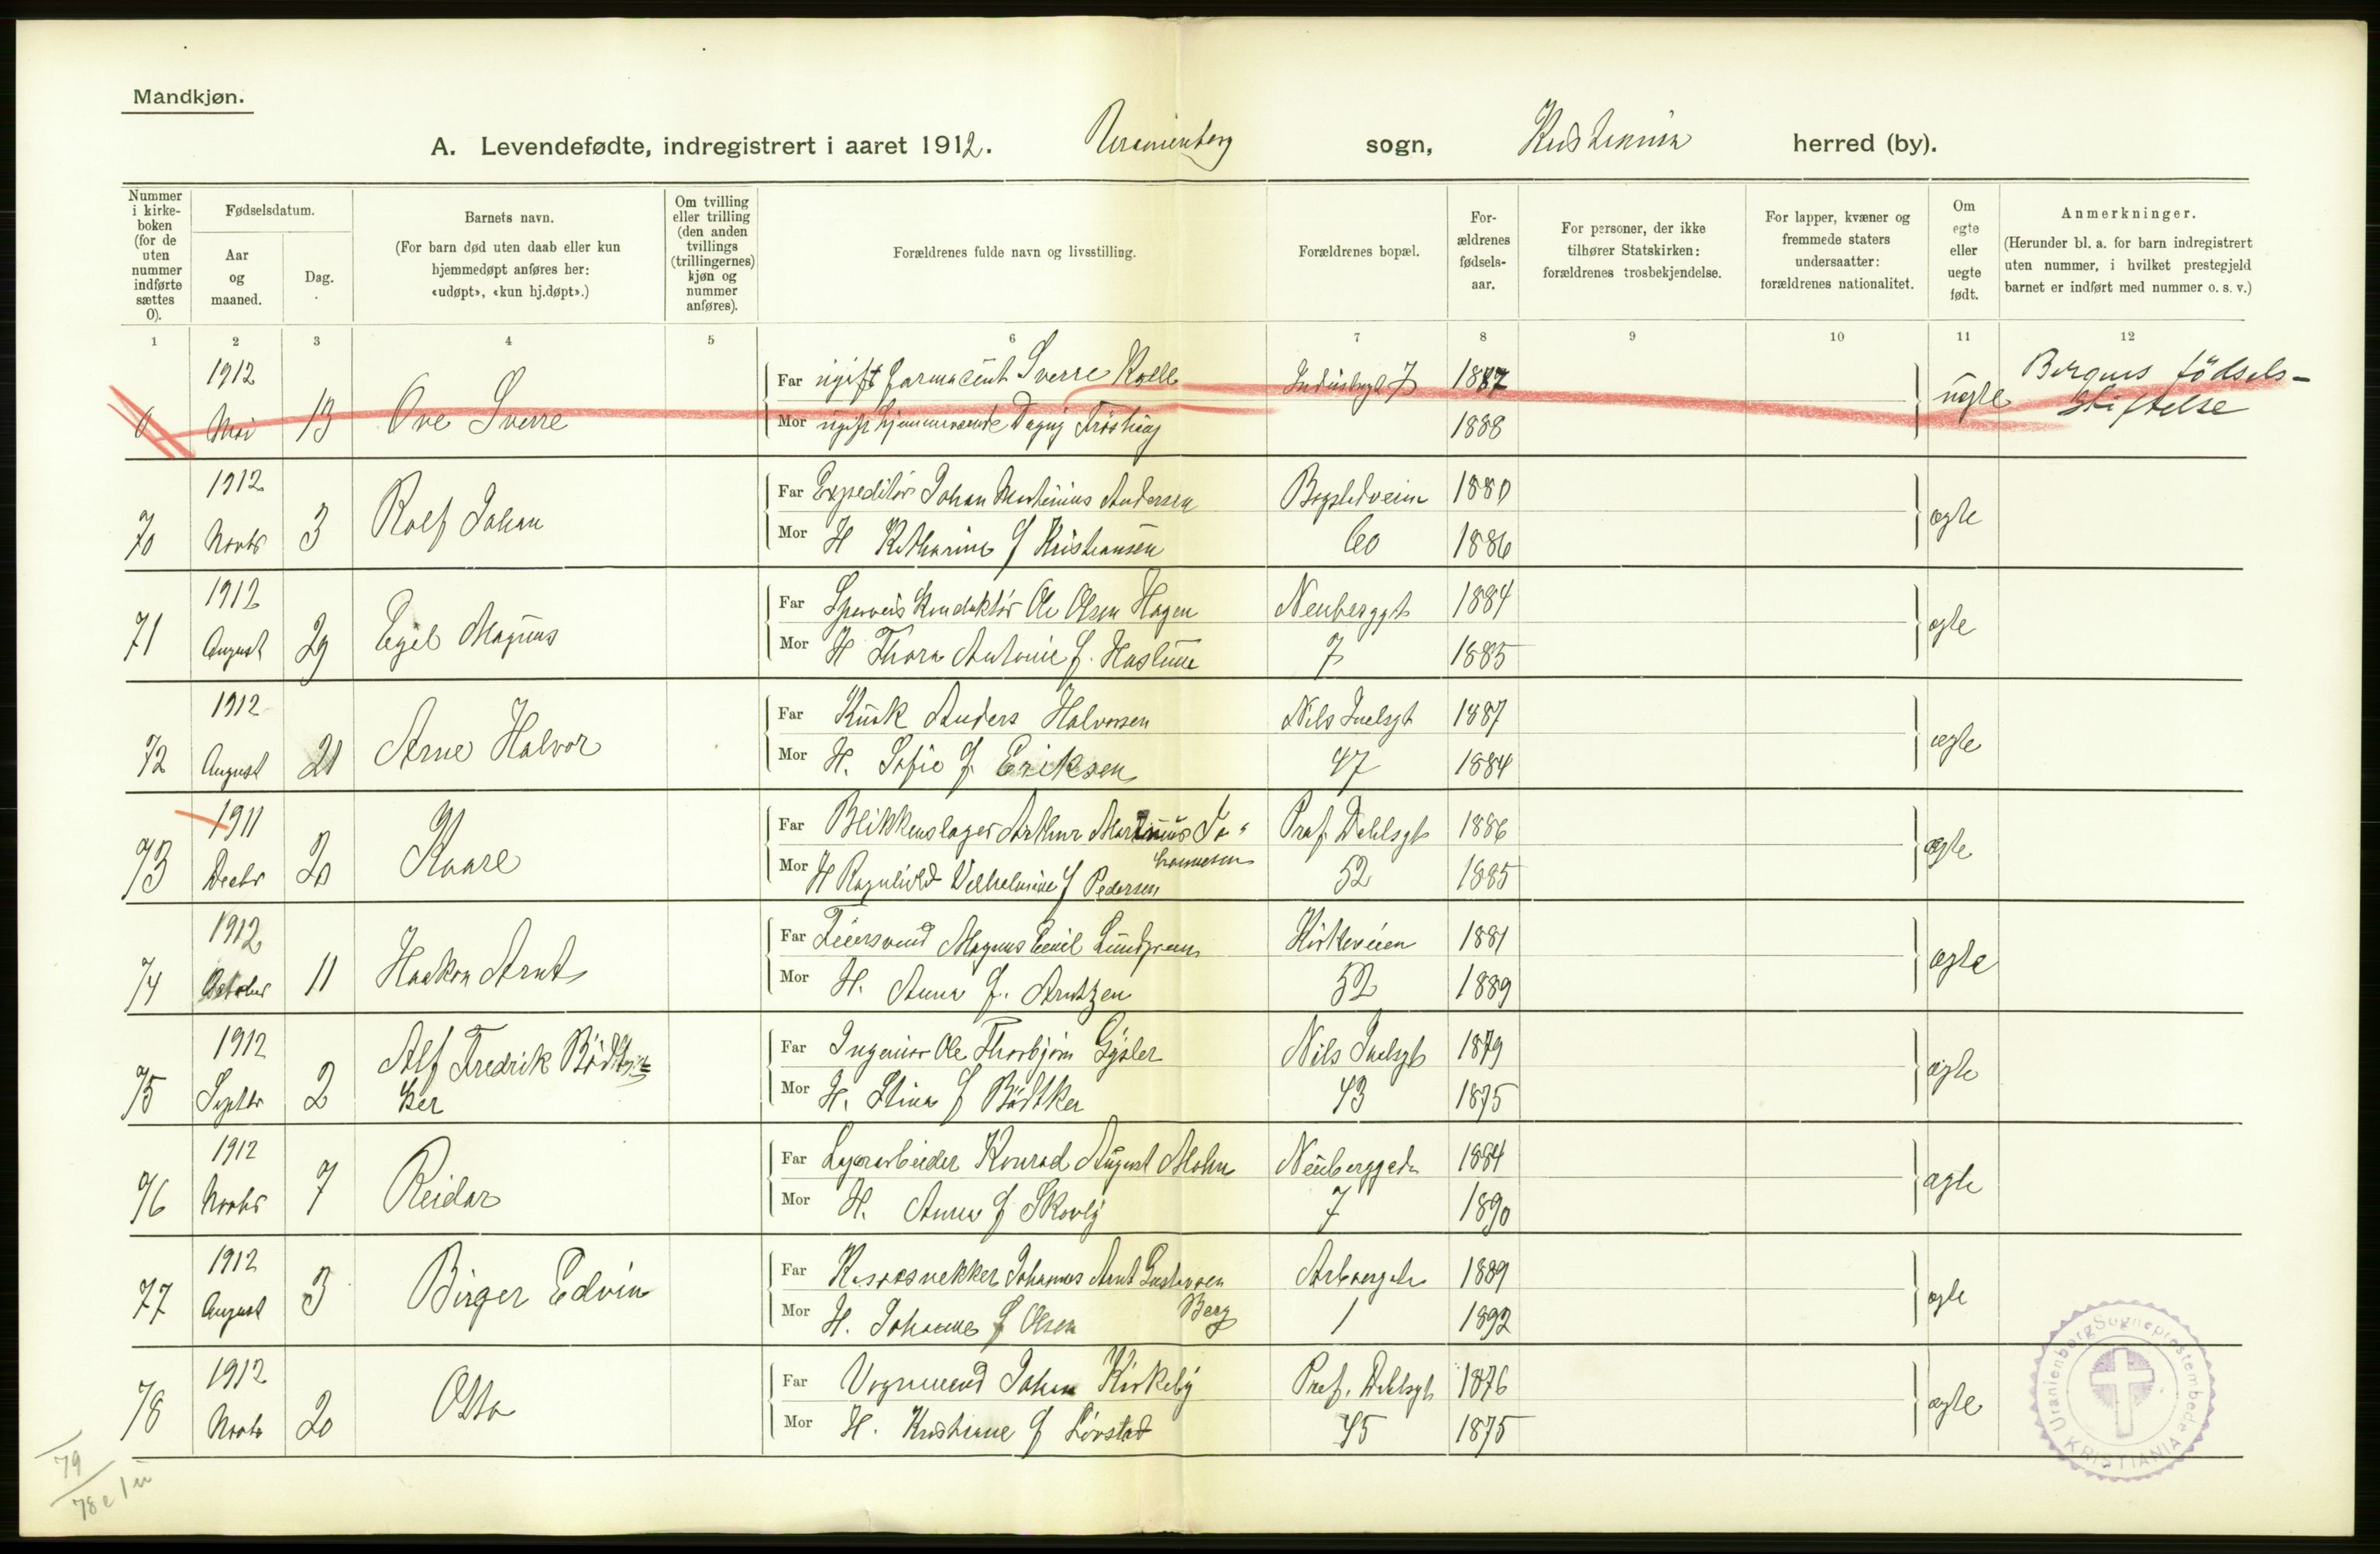 Mandkjøn.
A. Levendefødte, indregistrert i aaret 1912. Uranienborg sogn, Kristiania herred (by).
Nummer i kirke-boken (for de uten nummer indførte sættes 0).
Fødselsdatum.
Aar og maaned.
Dag.
Barnets navn.
(For barn død uten daab eller kun hjemmedøpt anføres her: «udøpt», «kun hj.døpt».)
Om tvilling eller trilling (den anden tvillings (trillingernes) kjøn og nummer anføres).
Forældrenes fulde navn og livsstilling.
Forældrenes bopæl.
For-ældrenes fødsels-aar.
For personer, der ikke tilhører Statskirken: forældrenes trosbekjendelse.
For lapper, kvæner og fremmede staters undersaatter: forældrenes nationalitet.
Om egte eller uegte født.
Anmerkninger.
(Herunder bl. a. for barn indregistrert uten nummer, i hvilket prestegjeld barnet er indført med nummer o. s. v.)
1 2 3 4 5 6 7 8 9 10 11 12
1912 Far ugift farmaceut Sverre 1887 Bergens fødsels-
0 Mai 13 Ove Sverre Mor ugift hjemmeværende Dagny 1888 uegte stiftelse
1912 Far Expeditør Johan Martinius Andersen Bogstadveien 1880
70 Novbr 3 Rolf Johan Mor H Katharine f Kristiansen 60 1886 ægte
1912 Far Sporveis Konduktør Ole Olsen Hagen Neuberggt 1884
71 August 29 Egil Magnus Mor H Thora Antonie f. Haslum 7 1885 egte
1912 Far Kusk Anders Halvorsen Nils Juelsgt 1887
72 August 21 Arne Halvor Mor H. Sofie f. Eriksen 47 1884 ægte
1911 Far Blikkenslager Arthur Martinius Jo- Prof. Dahlsgt 1886
hannesen
73 Decbr 20 Kaare Mor H Ragnhild Vilhelmine f Pedersen 52 1885 ægte
1912 Far Magnus Emil Lundgreen Kirkeveien 1881
74 October 11 Haakon Arnt Mor H. Anna f. Arntzen 52 1889 ægte
1912 Alf Fredrik Far Ingeniør Ole Thorbjørn Gysler Nils Juelsgt 1879
75 Septbr 2 ker Mor H. Stina f Bødtker 43 1875 ægte
1912 Far Lagerarbeider Konrad August Mohn Neuberggade 1884
76 Novbr 7 Reidar Mor H. Anna f Skovly 7 1890 ægte
1912 Far Johannes Arnt Gustavsen 1889
Berg
77 August 3 Birger Edvin Mor H. Johanne f Olsen 1 1892 egte
1912 Far Vognmand Johan Kirkeby Prof. Dahlsgt 1876
78 Novbr 20 Otto Mor H. Kristiane f Løvstad 45 1875 ægte
Uranienborg Sogneprestembede
KRISTIANIA
79
78 e 1 u